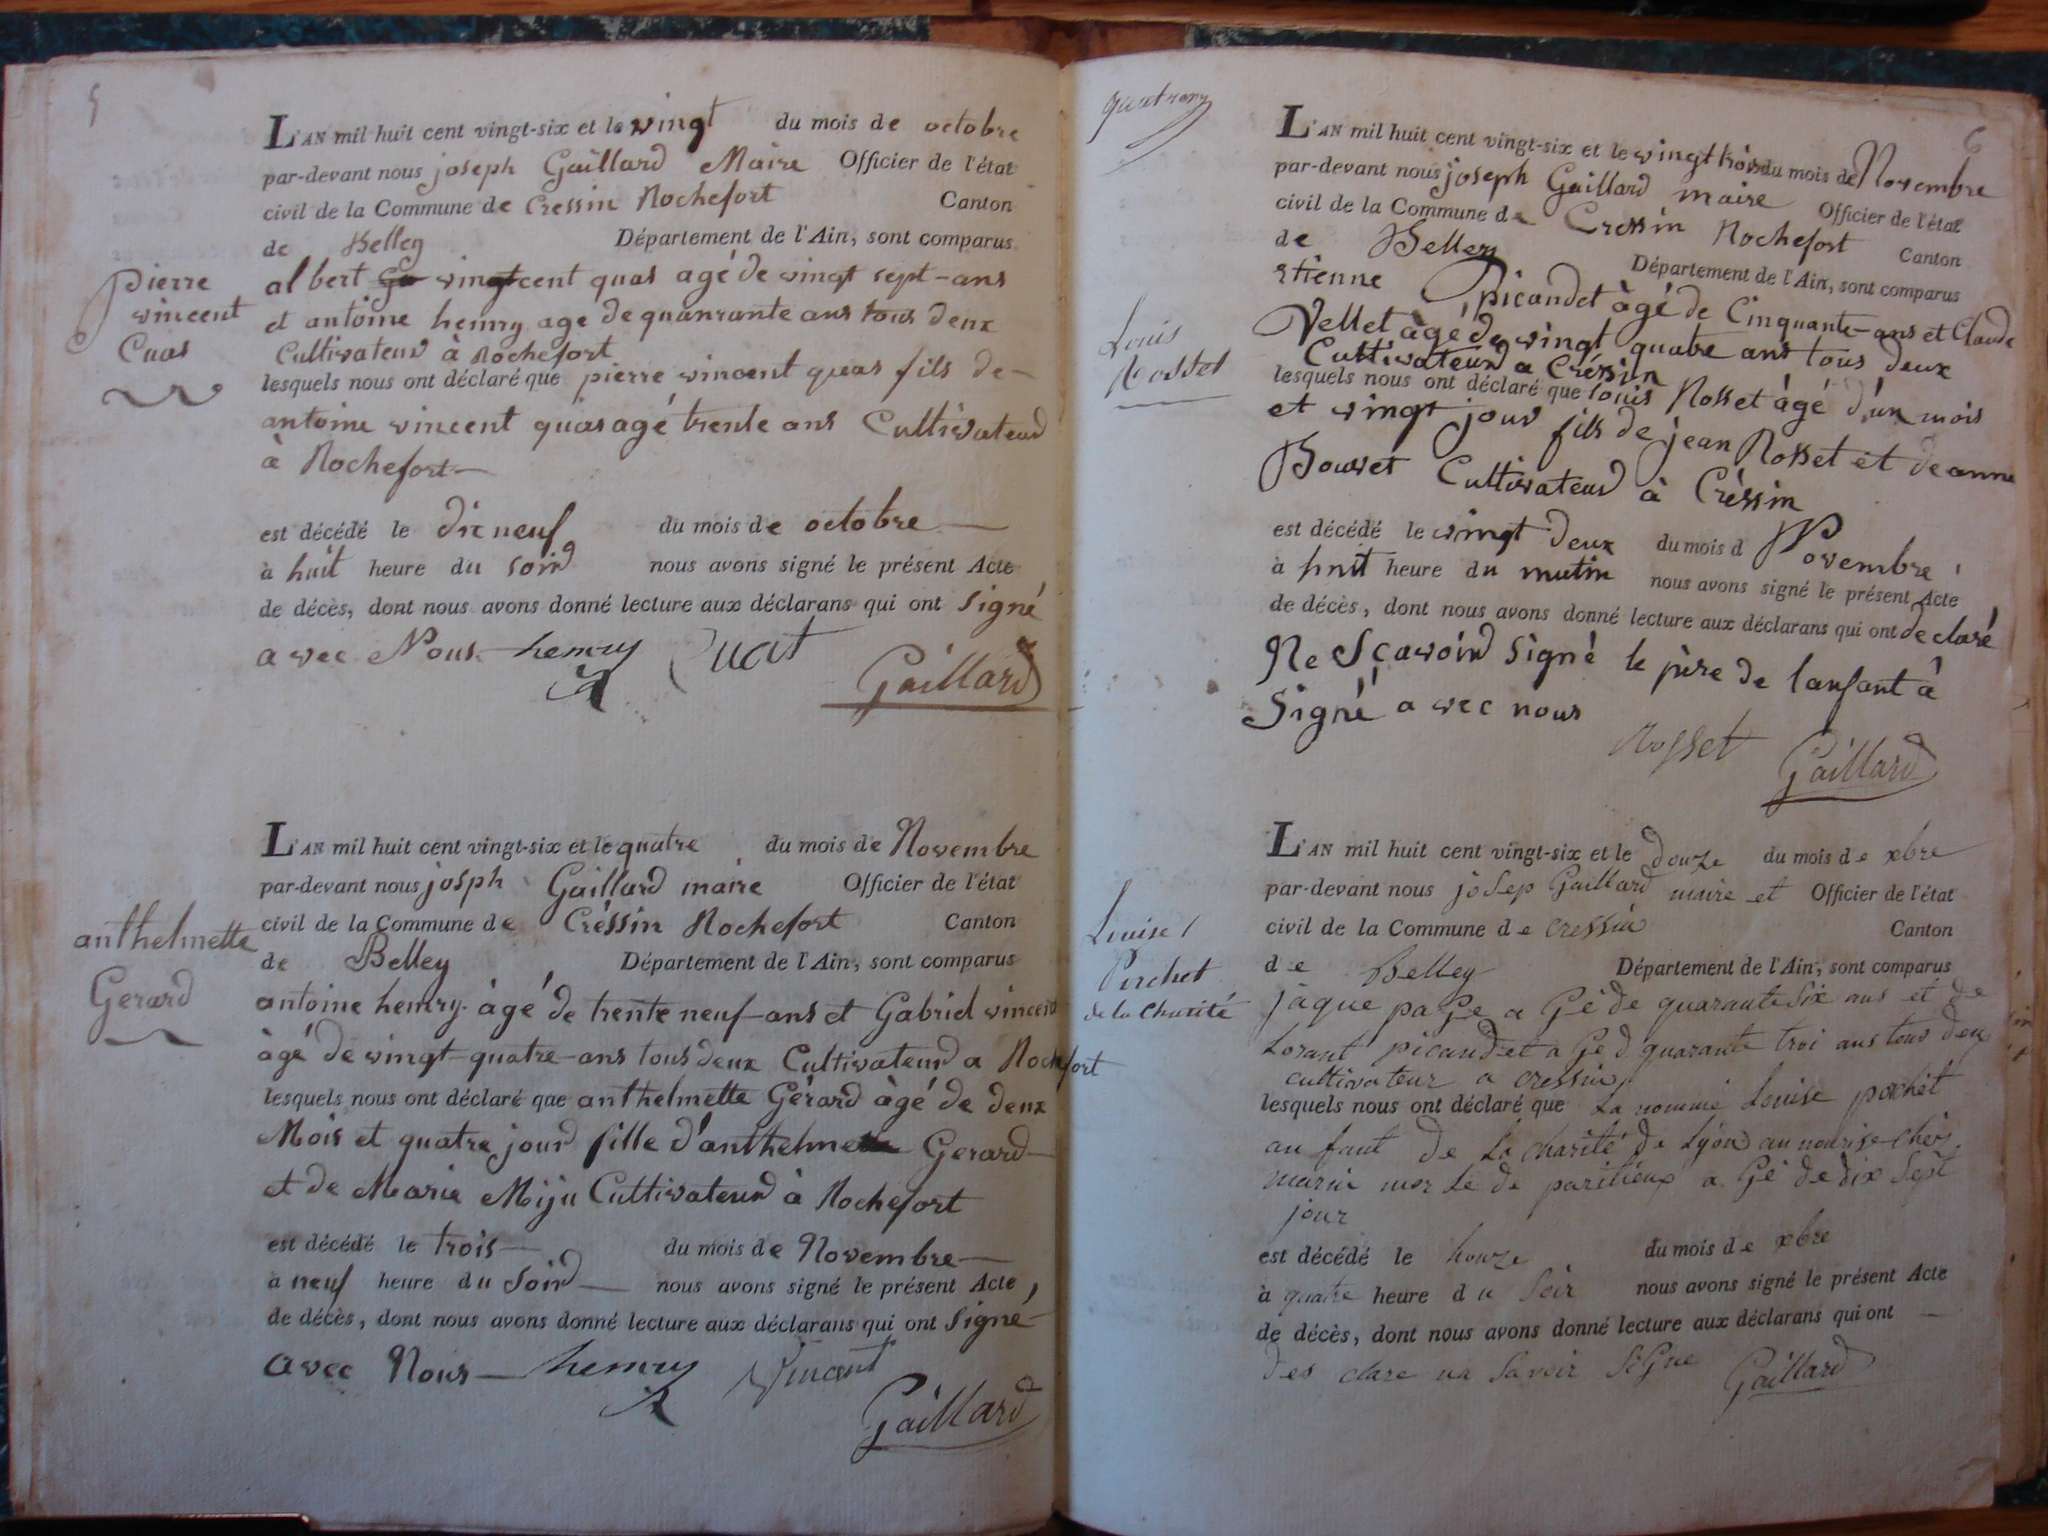 5
L'AN mil huit cent vingt-six et le vingt du mois de octobre
par-devant nous joseph Gaillard Maire Officier de l'état
civil de la Commune de Cressin Rochefort Canton
de Belley Département de l'Ain, sont comparus
Pierre
vincent
Cuas
albert vingtcent quas agé de vingt sept-ans
et antoine henry age de quanrante ans tous deux
Cultivateur à Rochefort
lesquels nous ont déclaré que pierre vincent quas fils de
antoine vincent quas agé trente ans Cultivateur
à Rochefort
est décédé le dix neuf du mois de octobre
à huit heure du soir nous avons signé le présent Acte
de décès, dont nous avons donné lecture aux déclarans qui ont signé
avec Nous henry Quat
Gaillard
L'AN mil huit cent vingt-six et le quatre du mois de Novembre
par-devant nous josph Gaillard maire Officier de l'état
civil de la Commune de Créssin Rochefort Canton
de Belley Département de l'Ain, sont comparus
anthelmette
Gerard
antoine henry àgé de trente neuf-ans et Gabriel vincent
àgé de vingt-quatre-ans tous deux Cultivateur a Rochefort
lesquels nous ont déclaré que anthelmette Gérard àgé de deux
Mois et quatre jour fille d'anthelme Gerard
et de Marie Miju Cultivateur à Rochefort
est décédé le trois du mois de Novembre
à neuf heure du Soir nous avons signé le présent Acte
de décès, dont nous avons donné lecture aux déclarans qui ont Signé
avec Nous henry Vincent
Gaillard
6
L'AN mil huit cent vingt-six et le vingt trois du mois de Novembre
par-devant nous joseph Gaillard maire Officier de l'état
civil de la Commune de Cressin Rochefort Canton
de Belley Département de l'Ain, sont comparus
Louis
Rosset
etienne picandet àgé de Cinquante-ans et Claude
Vellet àgé de vingt quatre ans tous deux
Cultivateur a Créssin
lesquels nous ont déclaré que louis Rosset àgé d'un mois
et vingt jour fils de jean Rosset et de anne
Bouvet Cultivateur à Créssin
est décédé le vingt deux du mois d Novembre
à huit heure du matin nous avons signé le présent Acte
de décès, dont nous avons donné lecture aux déclarans qui ont declaré
Ne Sçavoir Signé le père de lanfant à
Signé avec nous
Rosset Gaillard
L'AN mil huit cent vingt-six et le douze du mois de xbre
par-devant nous josep Gaillard maire et Officier de l'état
civil de la Commune de cressin Canton
de Belley Département de l'Ain, sont comparus
Louise
de la Charité
jàque page a Gé de quarante six ans et de
Lorant picandet a Gé d quarante troi ans tous deux
cultivateur a cressin
lesquels nous ont déclaré que La nommé Louise pochét
an fant de La charité de Lyon au nourise chéz
a Gé de dix Sept
jour
est décédé le honze du mois de xbre
à quatre heure du Soir nous avons signé le présent Acte
de décès, dont nous avons donné lecture aux déclarans qui ont
des clare na Savoir SiGne Gaillard